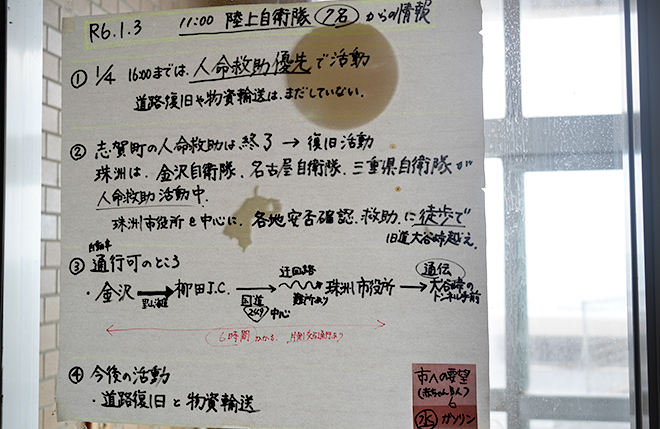 R6.1.3 11:00 陸上自衛隊(7名)からの情報
① 1/4 16:00までは、人命救助優先で活動
道路復旧や物資輸送は、まだしていない。
② 志賀町の人命救助は、終了 → 復旧活動
珠洲は、金沢自衛隊、名古屋自衛隊、三重県自衛隊が
人命救助活動中.
珠洲市役所を中心に、各地安否確認、救助、に徒歩で
旧道大谷峠越え.
自動車
③ 通行可のところ
迂回路 通伝
・金沢 → 柳田J.C. → 珠洲市役所 → 大谷峠の
トンネル手前
里山海道 国道 難所あり
249 中心
6時間かかる. 片側交互通行あり
④ 今後の活動
・道路復旧と物資輸送
市への要望
(赤ちゃん 人)
6
水 ガソリン